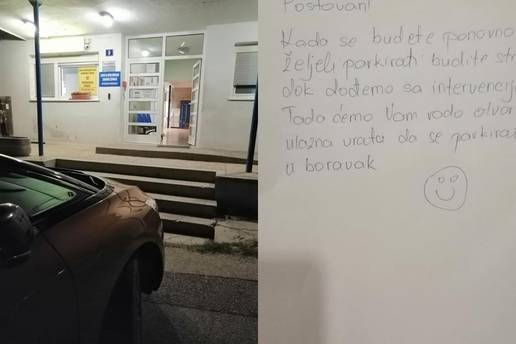 Poštovani
Kada se budete ponovno
željeli parkirati budite str
dok dođemo sa intervencij
Tada ćemo Vam rado otvor
ulazna vrata da se parkira
u boravak